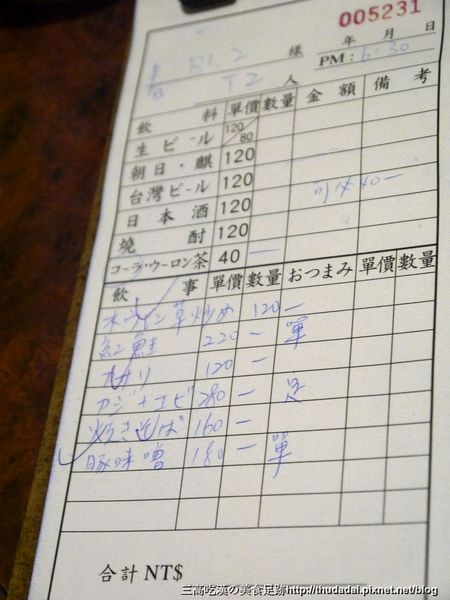 005231
51.2 樣 年 月 日
T2 人 PM:6:30
飲 料 單價 數量 金額 備考
生ビール 120/80
朝日・麒 120
台灣ビール 120
日本酒 120 可以40一
燒酎 120
コーラ・ウーロン茶 40 一
飲 事 單價 數量 おつまみ 單價 數量
草炒め 120 一
紅鮭 220 一 單
120 一
280 一
焼きそば 160 一
豚味噌 180 一 單
合計 NT$
三高吃漢の美食足跡http://thudadai.pixnet.net/blog